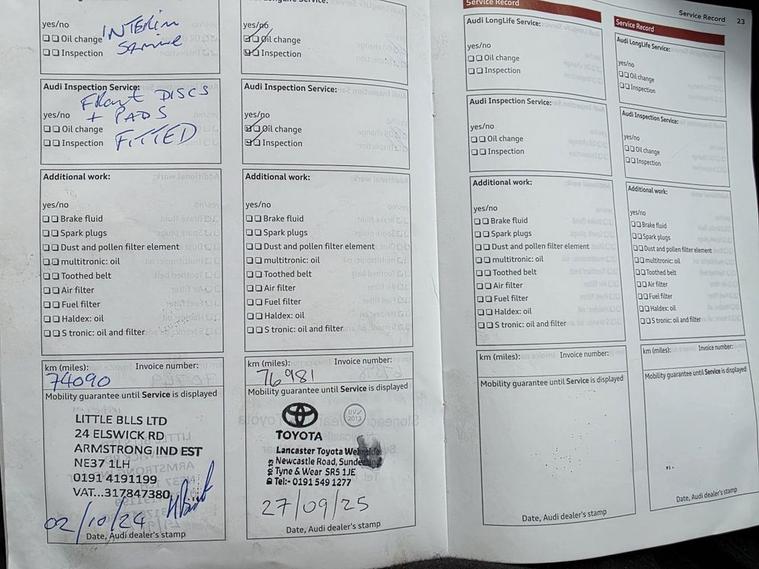 Service Record 23
yes/no
Oil change
Inspection
INTERIM
Service
Audi Inspection Service:
yes/no
Oil change
Inspection
Front DISCS
+ PADS
FITTED
Additional work:
yes/no
Brake fluid
Spark plugs
Dust and pollen filter element
multitronic: oil
Toothed belt
Air filter
Fuel filter
Haldex: oil
S tronic: oil and filter
km (miles): Invoice number:
74090
Mobility guarantee until Service is displayed
LITTLE BLLS LTD
24 ELSWICK RD
ARMSTRONG IND EST
NE37 1LH
0191 4191199
VAT...317847380
02/10/24
Date, Audi dealer's stamp
yes/no
Oil change
Inspection
Audi Inspection Service:
yes/no
Oil change
Inspection
Additional work:
yes/no
Brake fluid
Spark plugs
Dust and pollen filter element
multitronic: oil
Toothed belt
Air filter
Fuel filter
Haldex: oil
S tronic: oil and filter
km (miles): Invoice number:
76981
Mobility guarantee until Service is displayed
TOYOTA
Lancaster Toyota
Newcastle Road,
Tyne & Wear SR5 1JE
Tel:- 0191 549 1277
27/09/25
Date, Audi dealer's stamp
Service Record
Audi LongLife Service:
yes/no
Oil change
Inspection
Audi Inspection Service:
yes/no
Oil change
Inspection
Additional work:
yes/no
Brake fluid
Spark plugs
Dust and pollen filter element
multitronic: oil
Toothed belt
Air filter
Fuel filter
Haldex: oil
S tronic: oil and filter
km (miles): Invoice number:
Mobility guarantee until Service is displayed
Date, Audi dealer's stamp
Service Record
Audi LongLife Service:
yes/no
Oil change
Inspection
Audi Inspection Service:
yes/no
Oil change
Inspection
Additional work:
yes/no
Brake fluid
Spark plugs
Dust and pollen filter element
multitronic: oil
Toothed belt
Air filter
Fuel filter
Haldex: oil
S tronic: oil and filter
km (miles): Invoice number:
Mobility guarantee until Service is displayed
Date, Audi dealer's stamp